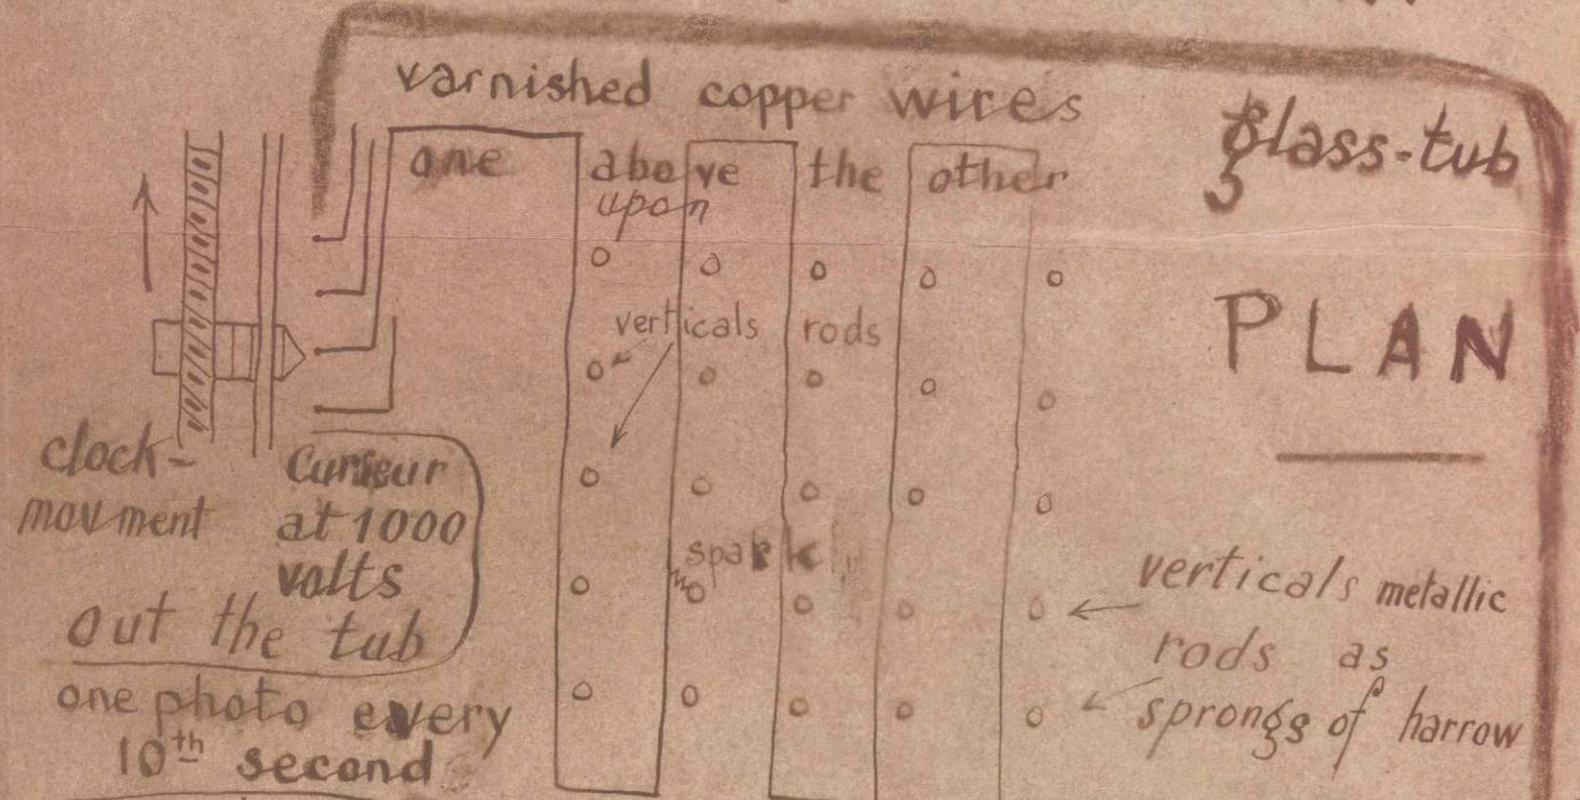 varnished copper wires
one above the other
upon
glass-tub
verticals rods
PLAN
clock-
movment
Curseur
at 1000
volts
out the tub
spark
verticals metallic
rods as
sprongs of harrow
one photo every
10th second